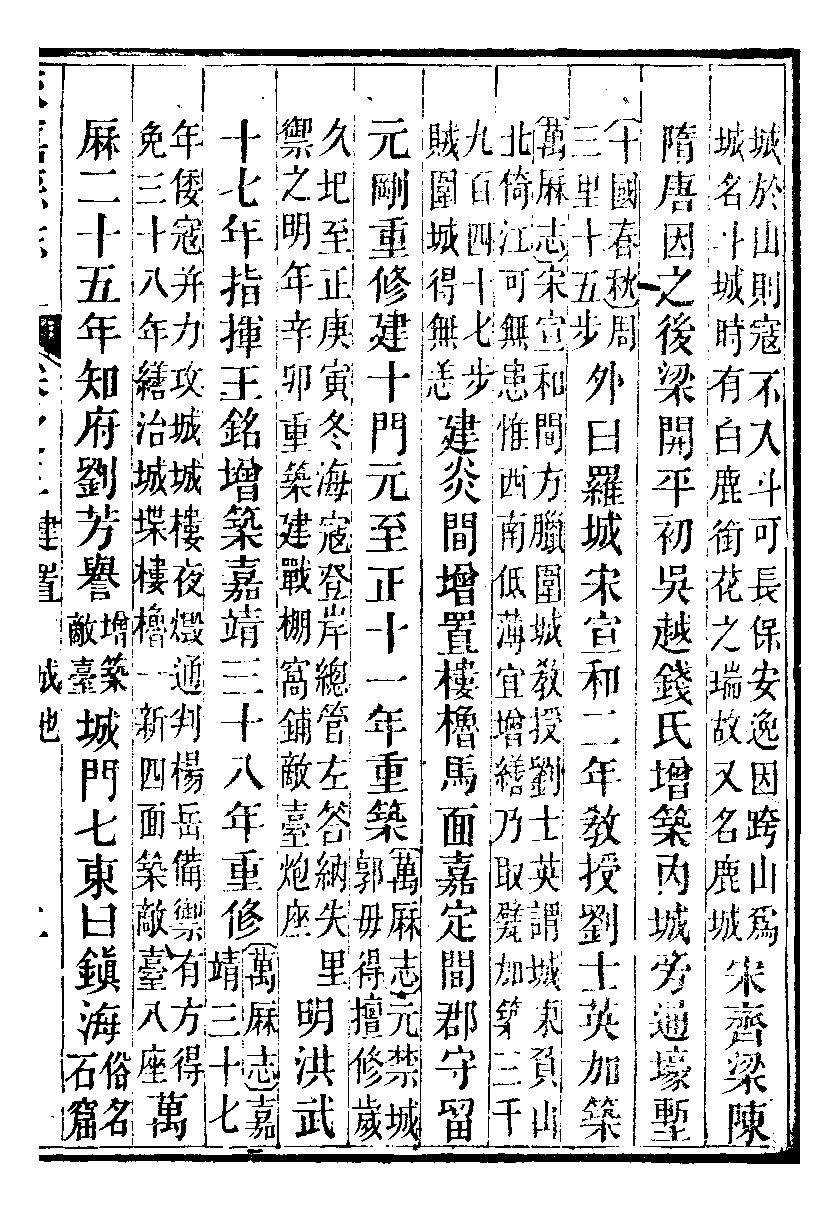 城於山則寇不入斗可長保安逸因跨山爲
城名斗城時有白鹿銜花之瑞故又名鹿城
宋齊梁陳
隋唐因之後梁開平初吳越錢氏增築內城旁通壕塹
十國春秋周
三里十五步
外曰羅城宋宣和二年敎授劉士英加築
萬厤志宋宣和間方臘圍城敎授劉士英謂城東負山
北倚江可無患惟西南低薄宜增繕乃取甓加築三千
九百四十七步
賊圍城得無恙
建炎間增置樓櫓馬面嘉定間郡守留
元剛重修建十門元至正十一年重築
萬厤志元禁城
郭毋得擅修歲
久圮至正庚寅冬海寇登岸總管左答納失里
禦之明年辛卯重築建戰棚窩鋪敵臺炮座
明洪武
十七年指揮王銘增築嘉靖三十八年重修
萬厤志嘉
靖三十七
年倭寇并力攻城城樓夜燬通判楊岳備禦有方得
免三十八年繕治城堞樓櫓一新四面築敵臺八座
萬
厤二十五年知府劉芳譽
增築
敵臺
城門七東曰鎭海
俗名
石窟
建置
城池